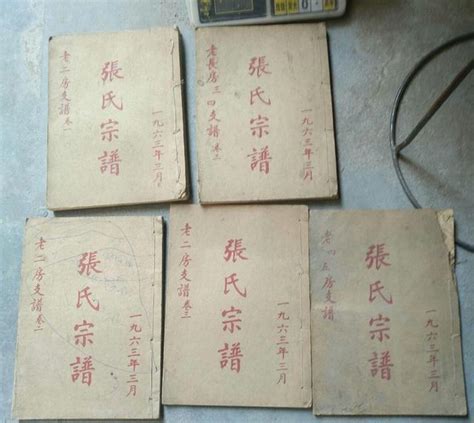 一九六三年三月
張氏宗譜
老二房支譜卷一
一九六三年三月
張氏宗譜
老長房三四支譜
一九六三年三月
張氏宗譜
老二房支譜卷二
一九六三年三月
張氏宗譜
老二房支譜卷三
一九六三年三月
張氏宗譜
老四五房支譜